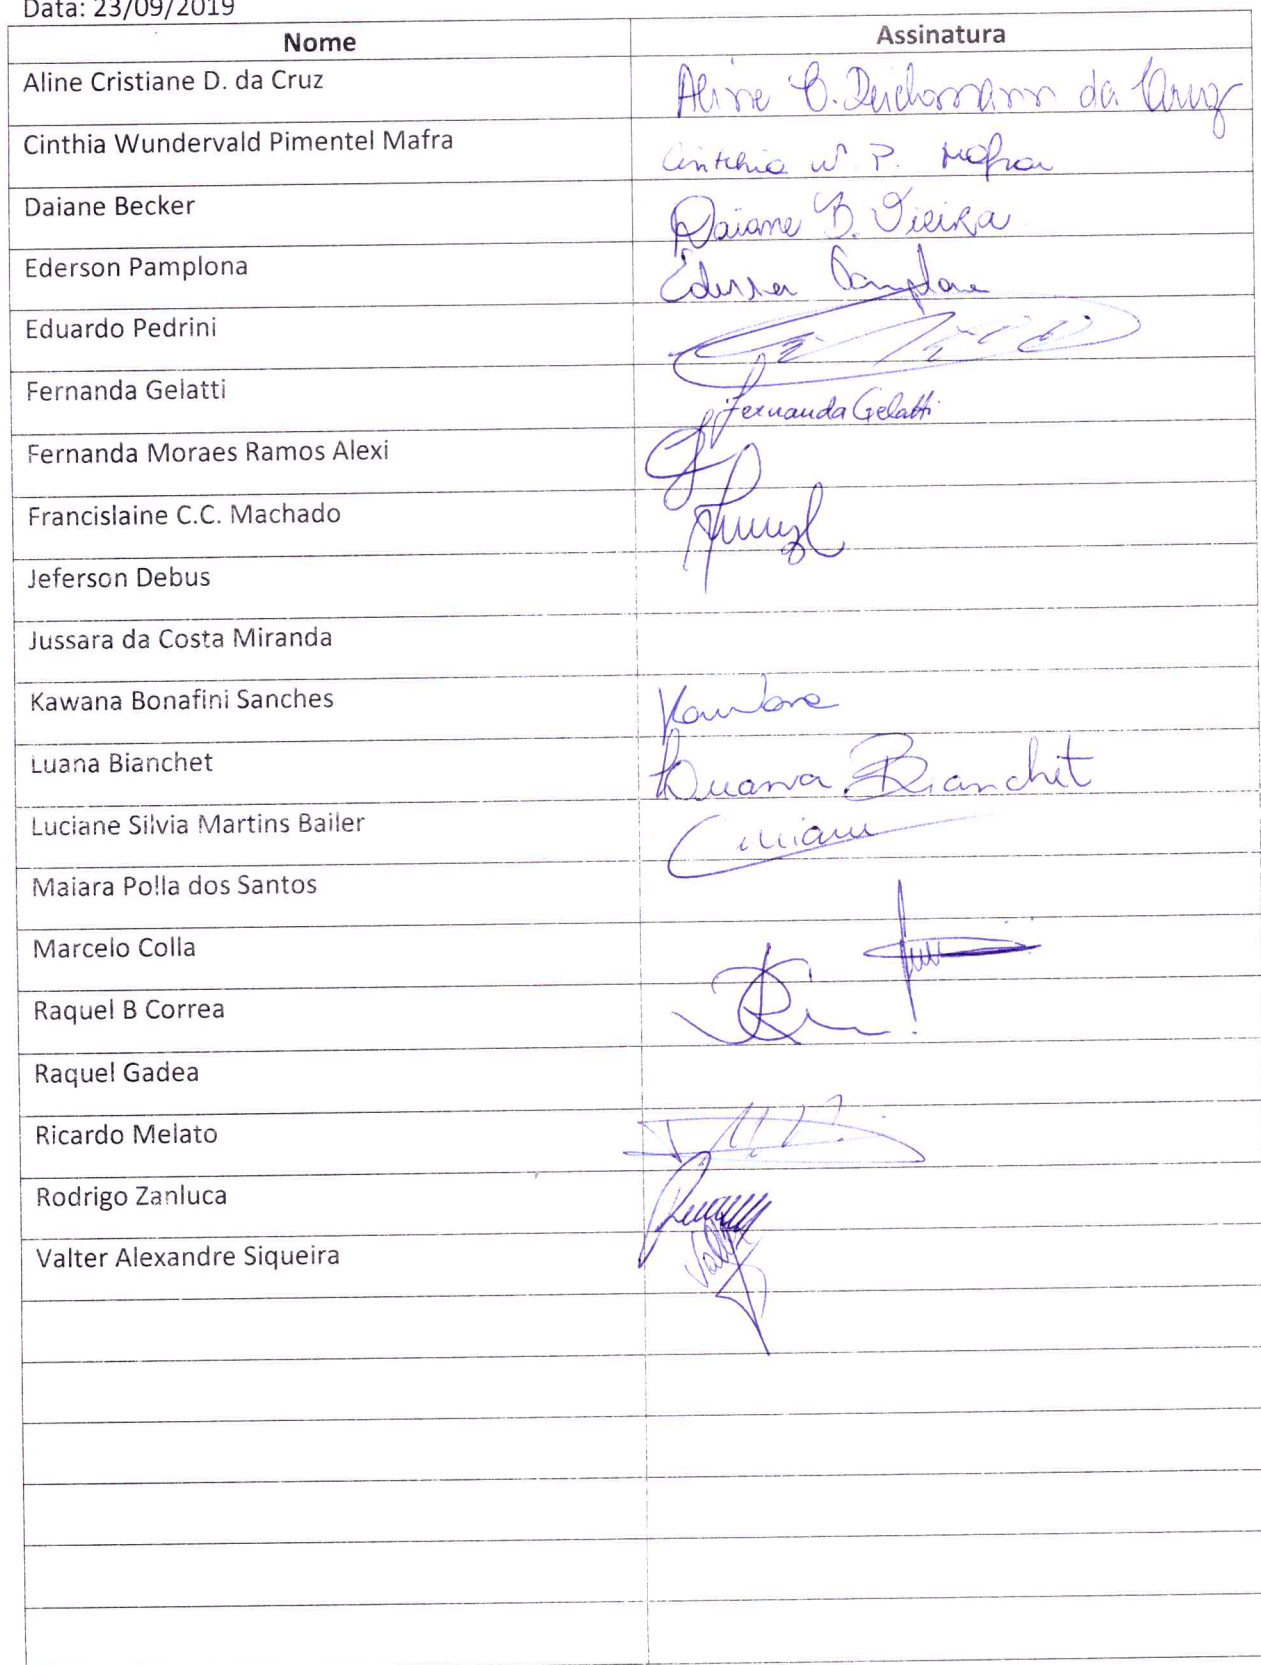 Data: 23/09/2019
Nome Assinatura
Aline Cristiane D. da Cruz Aline C. Deichmann da Cruz
Cinthia Wundervald Pimentel Mafra Cinthia W. P. Mafra
Daiane Becker Daiane B. Vieira
Ederson Pamplona Ederson Pamplona
Eduardo Pedrini
Fernanda Gelatti Fernanda Gelatti
Fernanda Moraes Ramos Alexi
Francislaine C.C. Machado
Jeferson Debus
Jussara da Costa Miranda
Kawana Bonafini Sanches
Luana Bianchet Luana Bianchet
Luciane Silvia Martins Bailer Luciane
Maiara Polla dos Santos
Marcelo Colla
Raquel B Correa
Raquel Gadea
Ricardo Melato
Rodrigo Zanluca
Valter Alexandre Siqueira